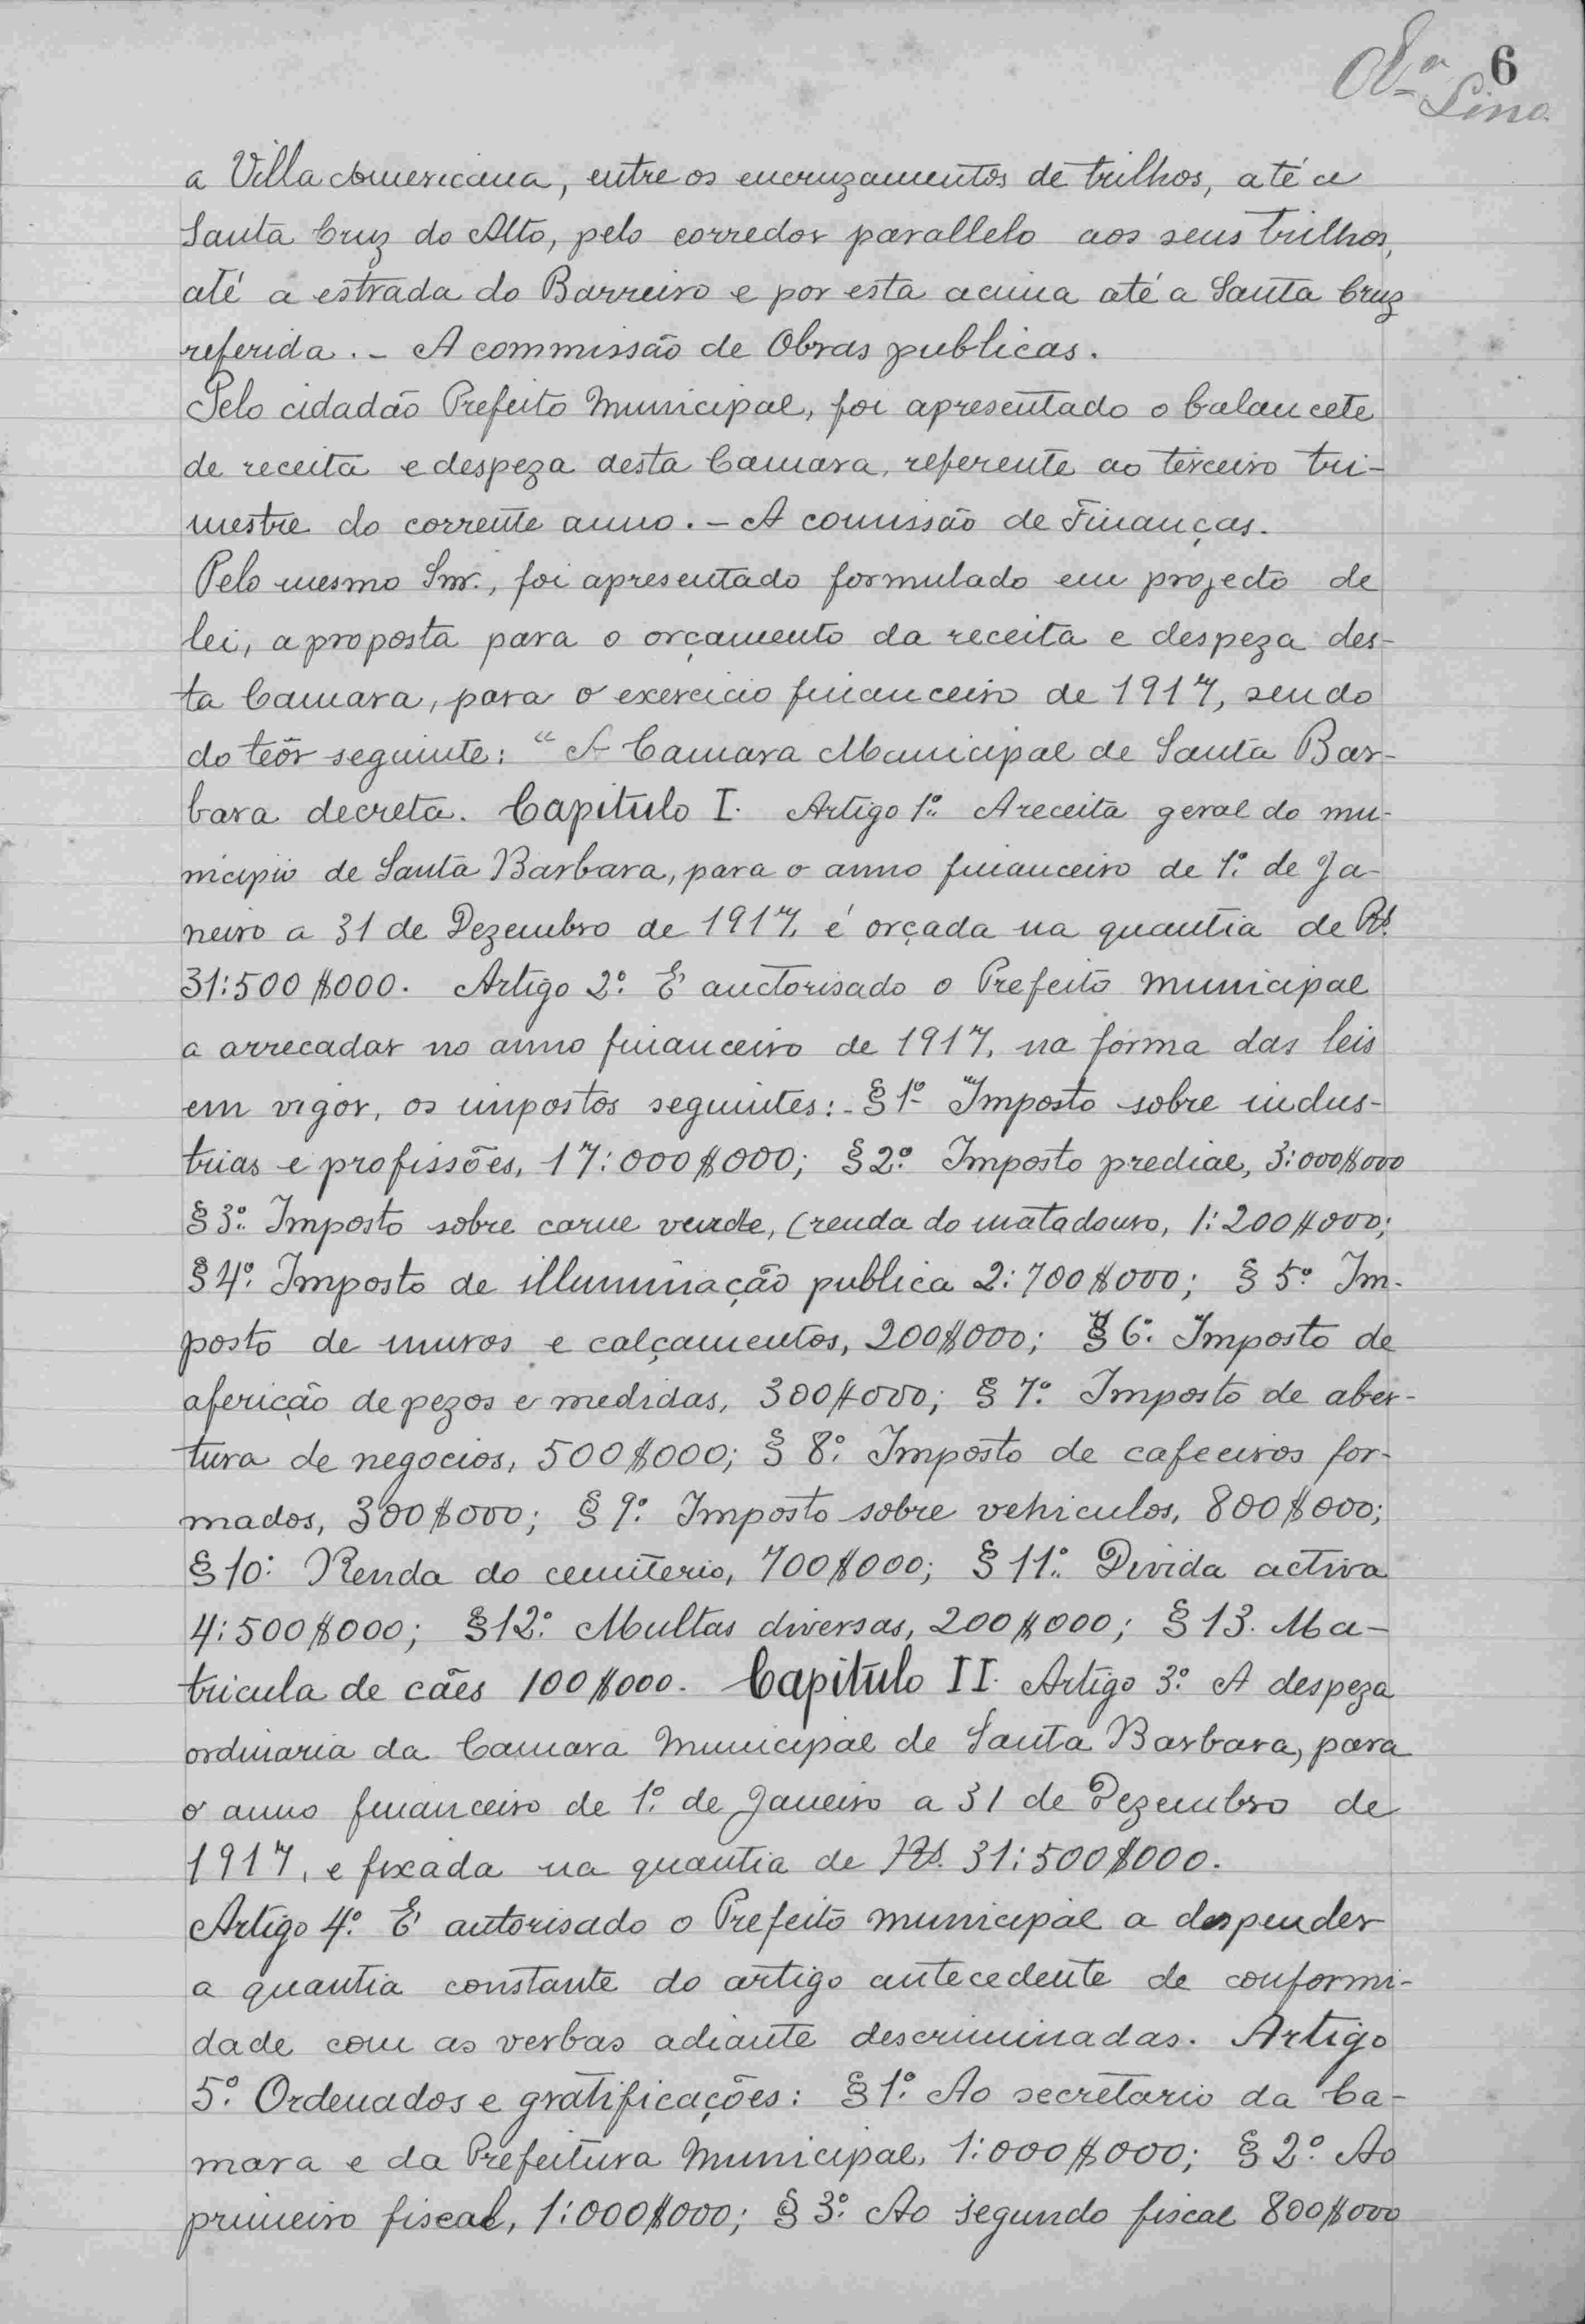 6
Lino
a Villa Americana, entre os encruzamentos de trilhos, até a
Santa Cruz do Alto, pelo corredor parallelo aos seus trilhos,
até a estrada do Barreiro e por esta acima até a Santa Cruz
referida. - A commissão de Obras publicas.
Pelo cidadão Prefeito Municipal, foi apresentado o balancete
de receita e despeza desta Camara, referente ao terceiro tri-
mestre do corrente anno. - A comissão de Finanças.
Pelo mesmo Snr., foi apresentado formulado em projecto de
lei, a proposta para o orçamento da receita e despeza des-
ta Camara, para o exercicio financeiro de 1917, sendo
do teôr seguinte: "A Camara Municipal de Santa Bar-
bara decreta. Capitulo I. Artigo 1º. A receita geral do mu-
nicipio de Santa Barbara, para o anno financeiro de 1º. de Ja-
neiro a 31 de Dezembro de 1917, é orçada na quantia de Rs.
31:500$000. Artigo 2º. E' auctorisado o Prefeito Municipal
a arrecadar no anno financeiro de 1917, na forma das leis
em vigor, os impostos seguintes: - § 1º Imposto sobre indus-
trias e profissões, 17:000$000; § 2º. Imposto predial, 3:000$000
§ 3º. Imposto sobre carne verde, (renda do matadouro, 1:200$000;
§ 4º. Imposto de illuminação publica 2:700$000; § 5º. Im-
posto de muros e calçamentos, 200$000; § 6º. Imposto de
aferição de pezos e medidas, 300$000; § 7º. Imposto de aber-
tura de negocios, 500$000; § 8º. Imposto de cafeeiros for-
mados, 300$000; § 9º. Imposto sobre vehiculos, 800$000;
§ 10º. Renda do cemiterio, 700$000; § 11º. Divida activa
4:500$000; § 12º. Multas diversas, 200$000; § 13. Ma-
tricula de cães 100$000. Capitulo II. Artigo 3º. A despeza
ordinaria da Camara Municipal de Santa Barbara, para
o anno financeiro de 1º. de Janeiro a 31 de Dezembro de
1917, e fixada na quantia de Rs. 31:500$000.
Artigo 4º. E' autorisado o Prefeito municipal a despender
a quantia constante do artigo antecedente de conformi-
dade com as verbas adiante descriminadas. Artigo
5º. Ordenados e gratificações: § 1º. Ao secretario da Ca-
mara e da Prefeitura Municipal, 1:000$000; § 2º. Ao
primeiro fiscal, 1:000$000; § 3º. Ao segundo fiscal 800$000